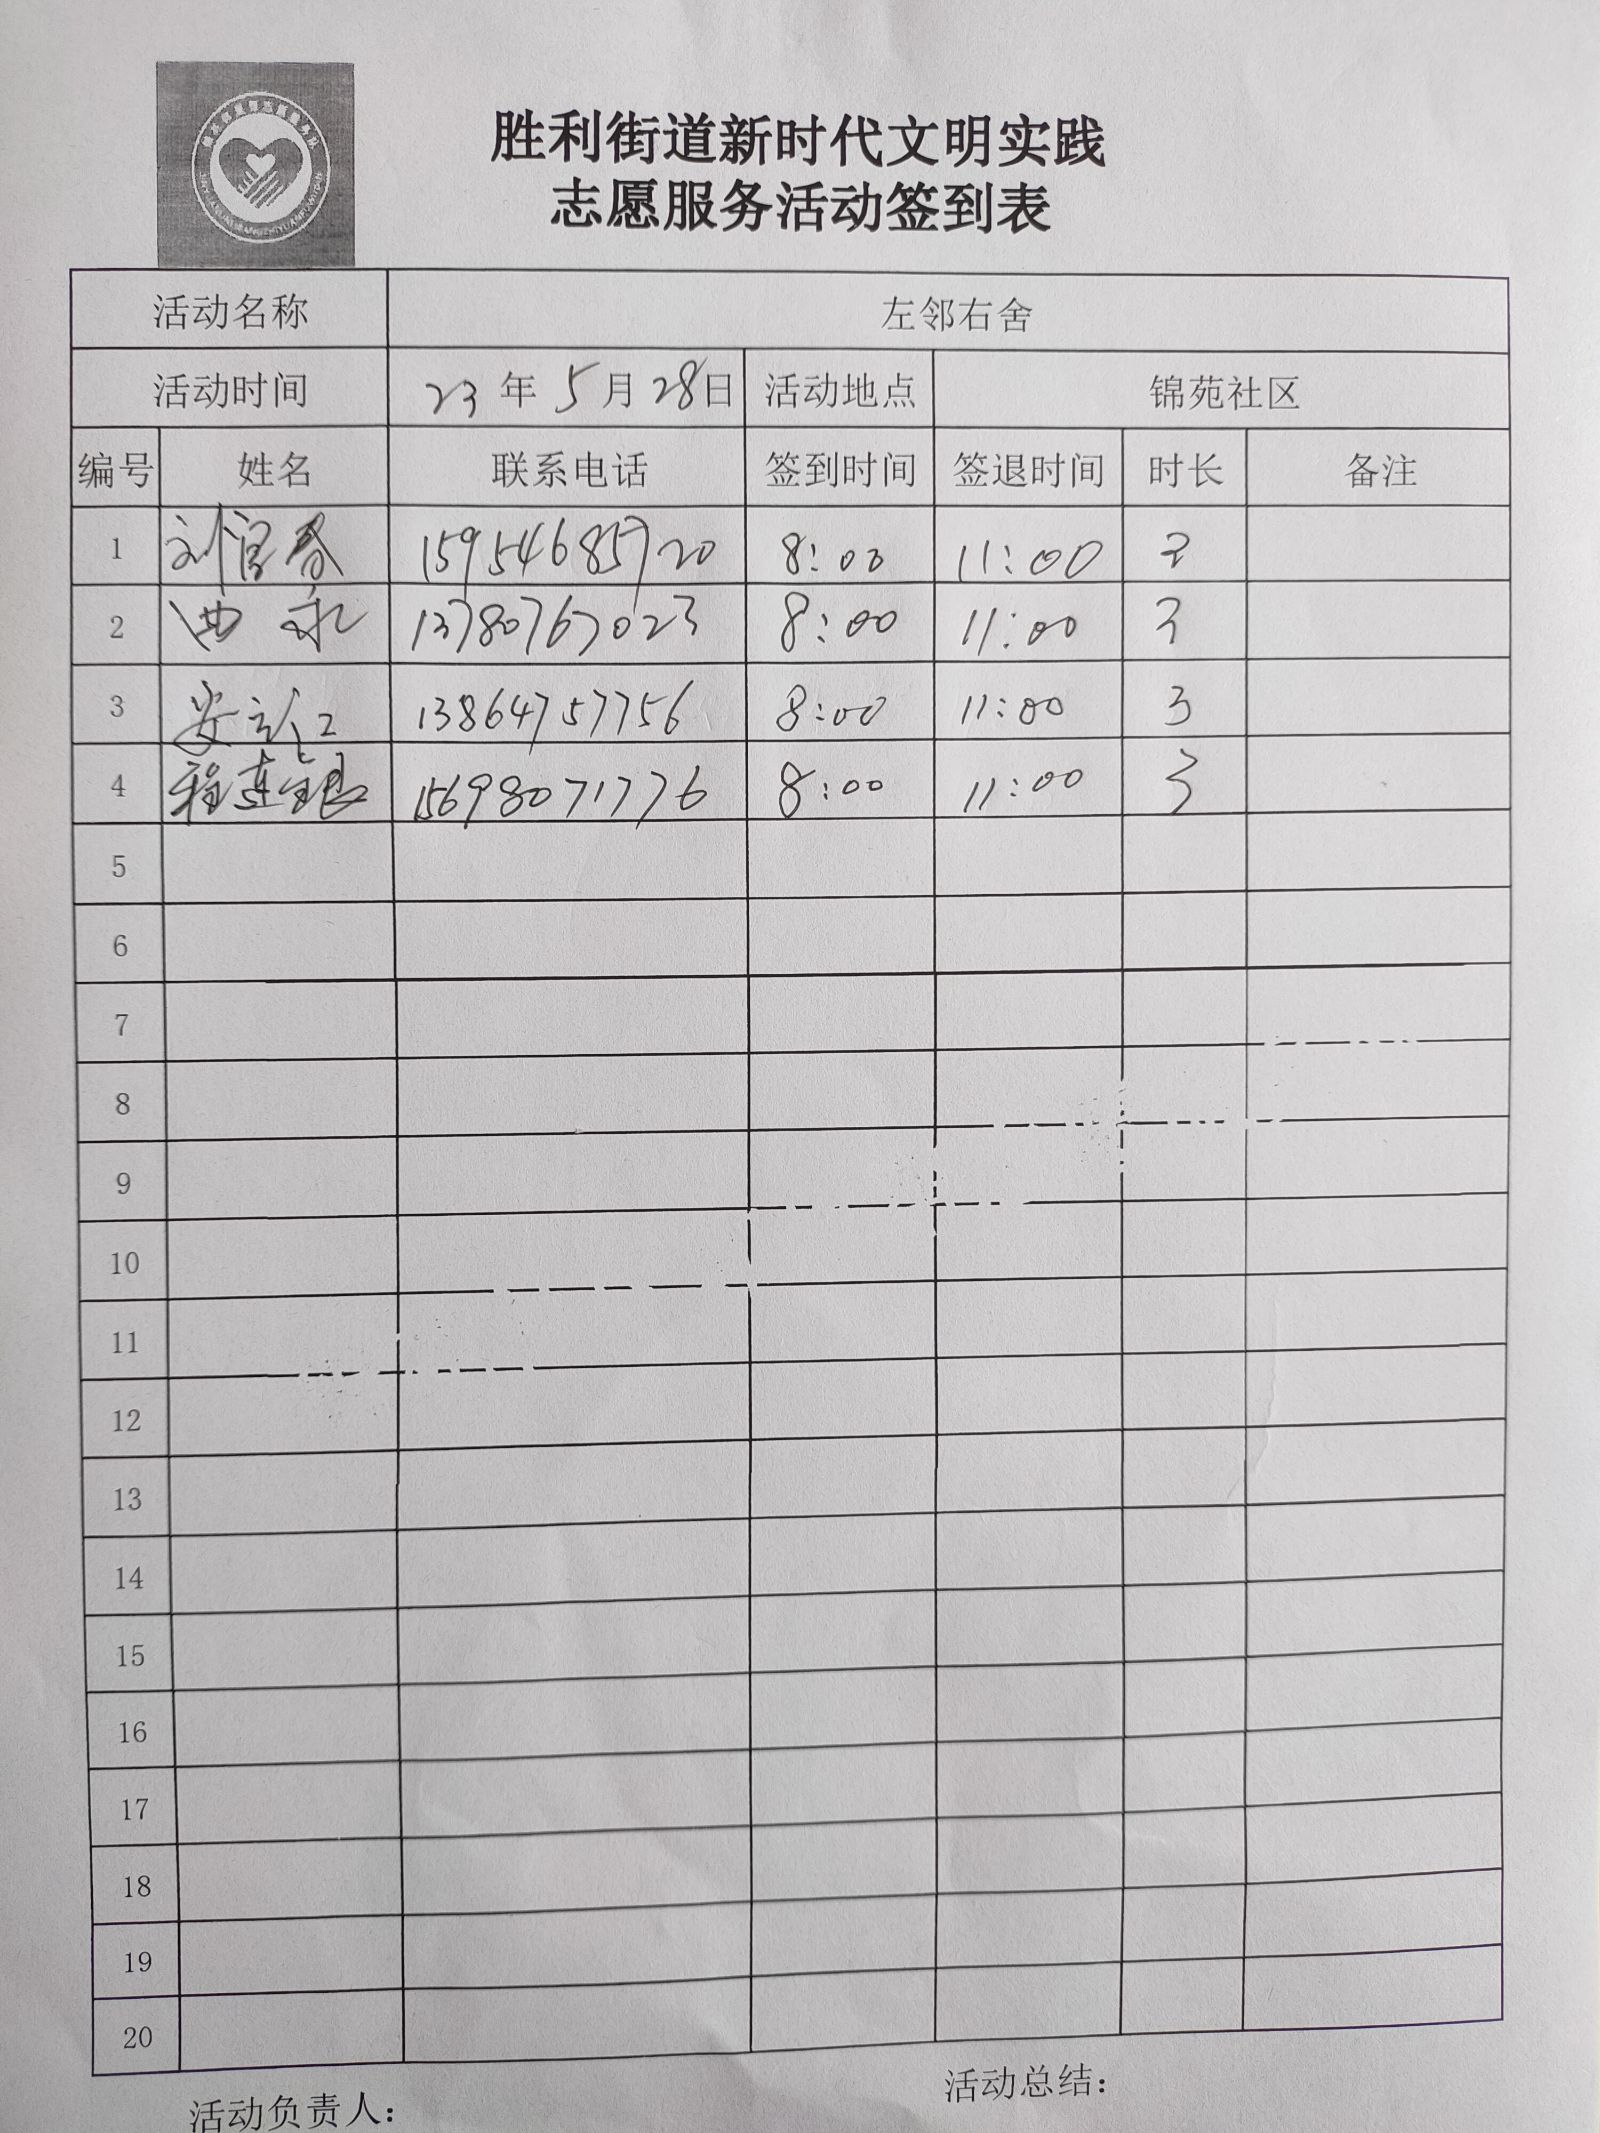 胜利街道新时代文明实践
志愿服务活动签到表
活动名称 左邻右舍
活动时间 23年5月28日 活动地点 锦苑社区
编号 姓名 联系电话 签到时间 签退时间 时长 备注
1 刘 15954685720 8:00 11:00 3
2 13780767023 8:00 11:00 3
3 安 13864757756 8:00 11:00 3
4 程连银 15698071776 8:00 11:00 3
5
6
7
8
9
10
11
12
13
14
15
16
17
18
19
20
活动负责人： 活动总结：